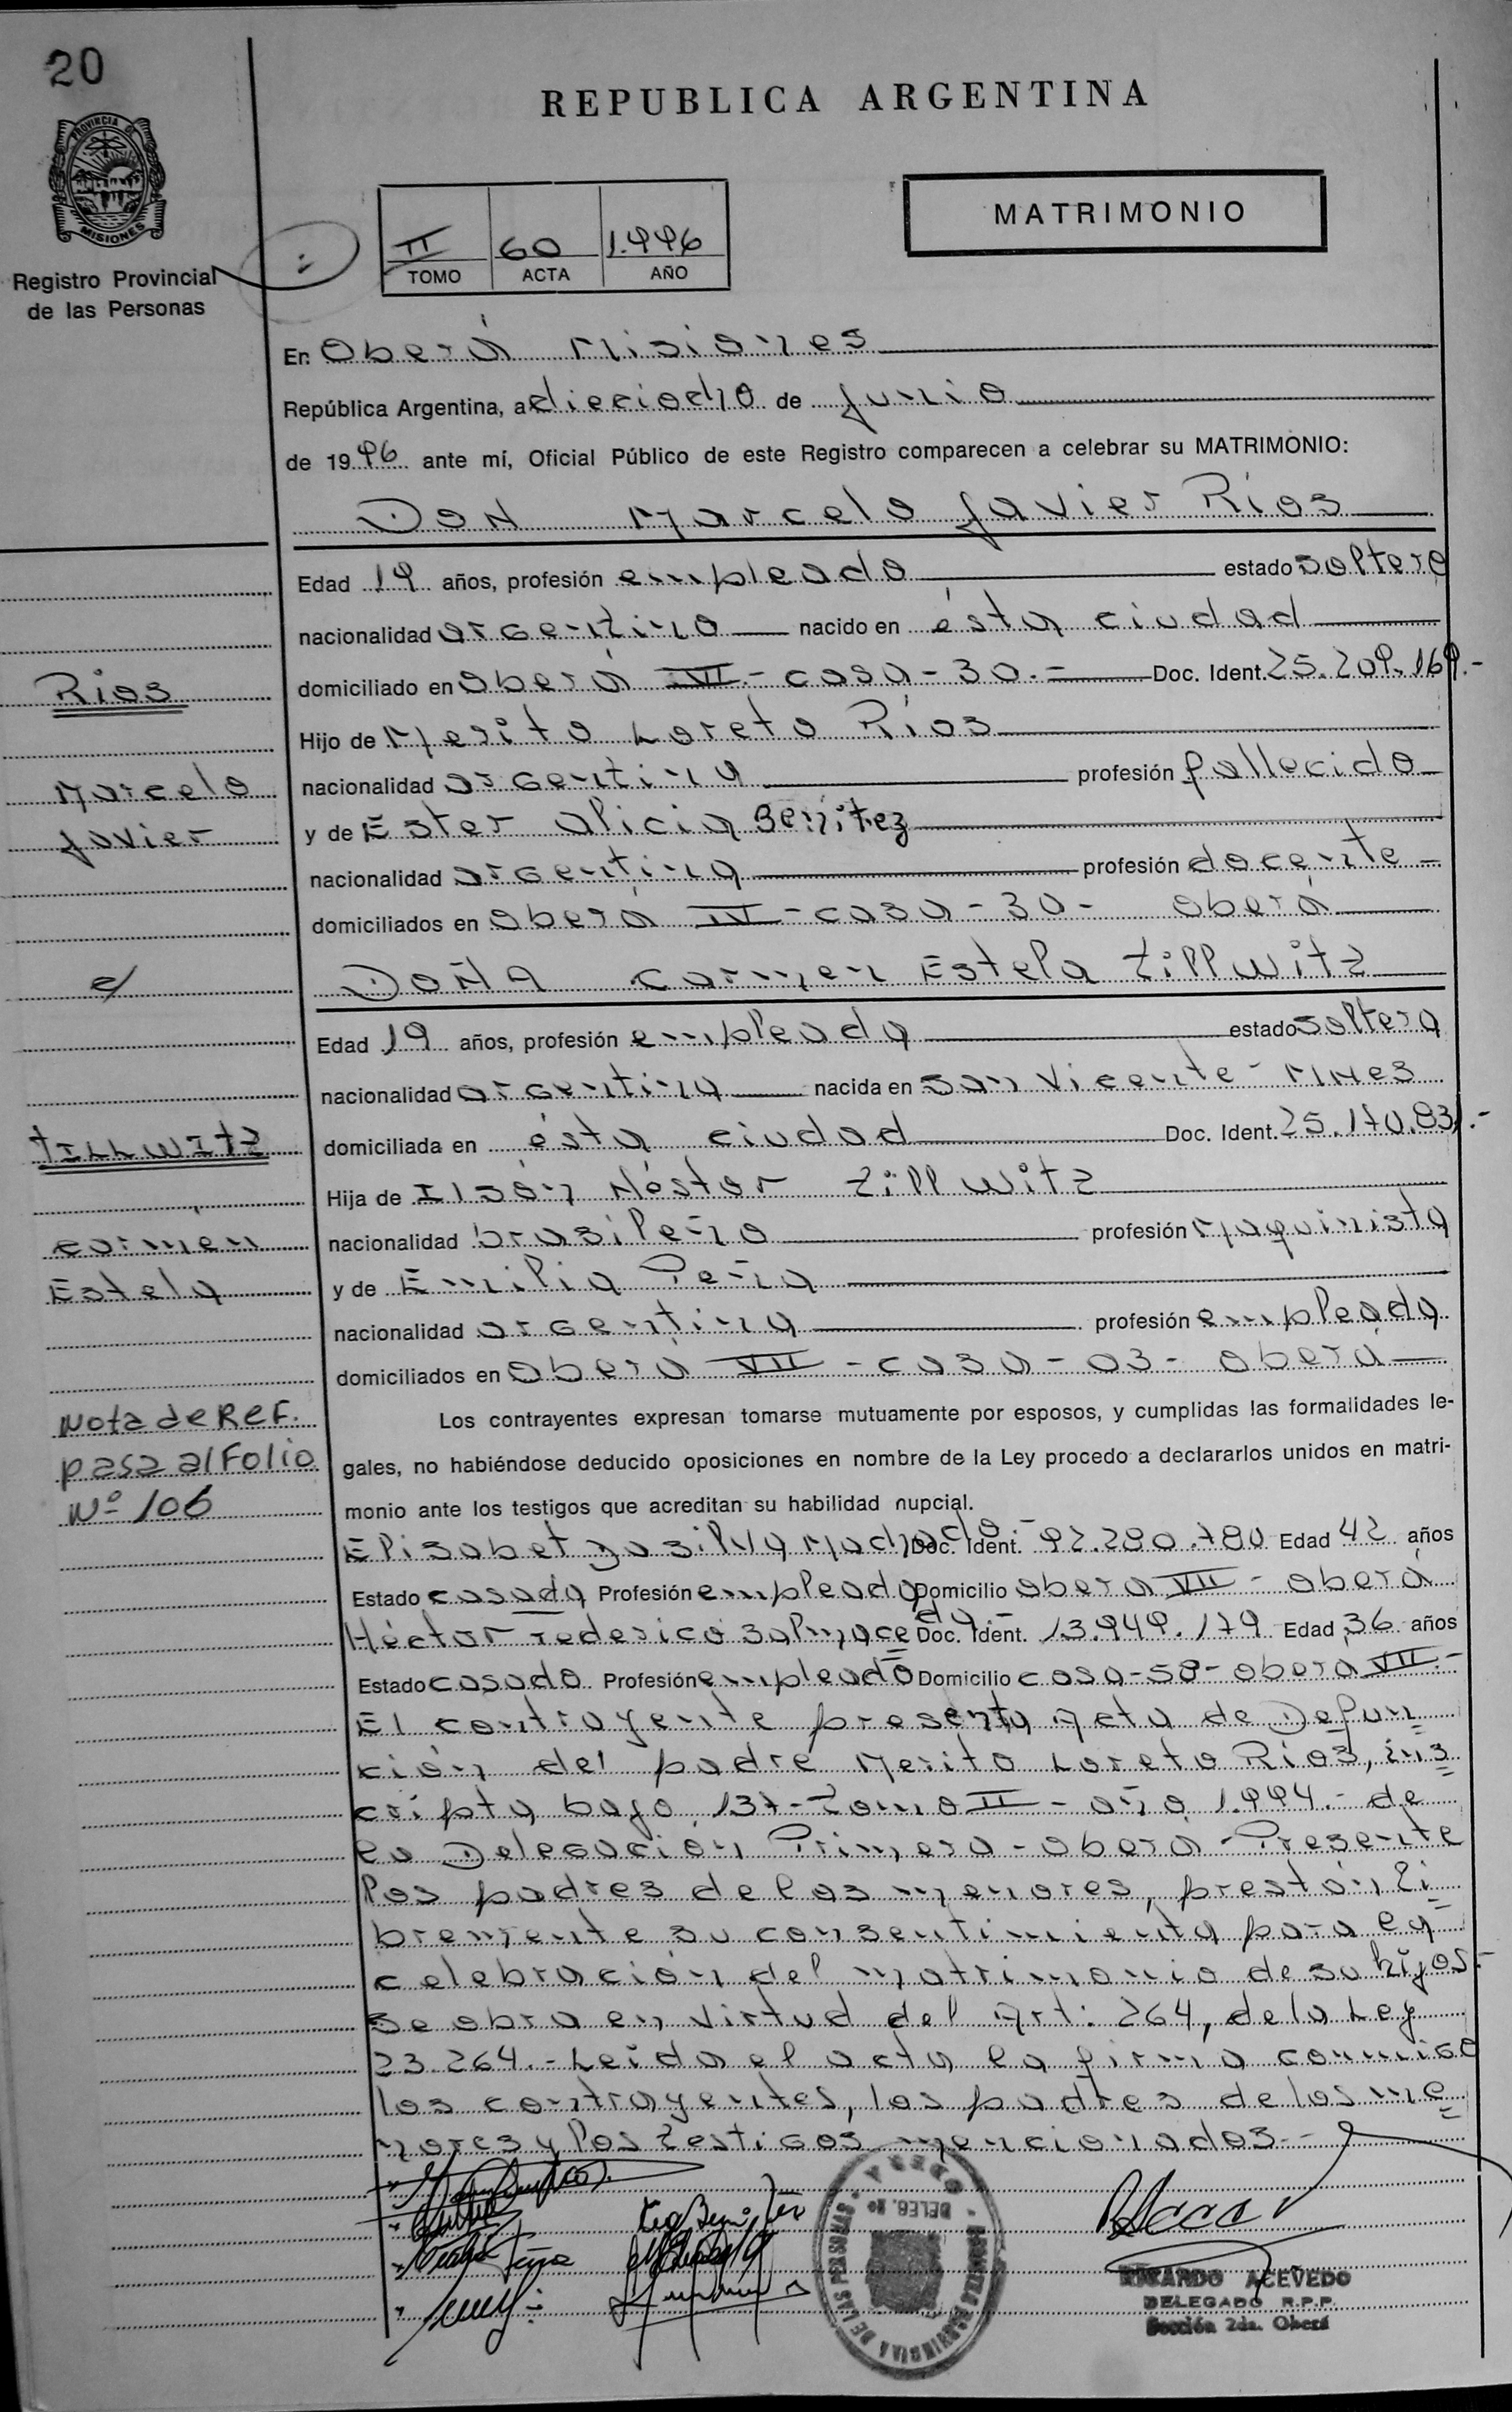 20
REPUBLICA ARGENTINA
PROVINCIA DE
MISIONES
Registro Provincial
de las Personas
II 60 1.996
TOMO ACTA AÑO
MATRIMONIO
En Oberá Misiones
República Argentina, a dieciocho de Junio
de 1996 ante mí, Oficial Público de este Registro comparecen a celebrar su MATRIMONIO:
DoN Marcelo Javier Ríos
Edad 19 años, profesión empleado estado soltero
nacionalidad argentino nacido en ésta ciudad
domiciliado en Oberá VII - casa - 30.- Doc. Ident. 25.209.169.-
Hijo de Merito Loreto Ríos
nacionalidad argentina profesión fallecido
y de Ester Alicia Benitez
nacionalidad argentina profesión docente
domiciliados en Oberá - casa - 30 - Oberá
DoÑA Carmen Estela Zillwitz
Edad 19 años, profesión empleada estado soltera
nacionalidad argentina nacida en San Vicente - Mnes
domiciliada en ésta ciudad Doc. Ident. 25.170.831.-
Hija de Ilson Néstor Zillwitz
nacionalidad brasileño profesión Maquinista
y de Emilia Peña
nacionalidad argentina profesión empleada
domiciliados en Oberá VII - casa - 03 - Oberá
Los contrayentes expresan tomarse mutuamente por esposos, y cumplidas las formalidades le-
gales, no habiéndose deducido oposiciones en nombre de la Ley procedo a declararlos unidos en matri-
monio ante los testigos que acreditan su habilidad nupcial.
Elisabet Da Silva Machado.- Doc. Ident. 92.280.780 Edad 42 años
Estado casada Profesión empleada Domicilio Oberá VII - Oberá
Héctor Federico Salmaceda.- Doc. Ident. 13.949.179 Edad 36 años
Estado casado Profesión empleado Domicilio casa - 58 - Oberá VII.-
El contrayente presenta Acta de Defun=
ción del padre Merito Loreto Ríos, ins=
cripta bajo 137 - Tomo II - año 1.994.- de
la Delegación Primera - Oberá - Presente
los padres de los menores, prestan li=
bremente su consentimiento para la
celebración del matrimonio de su hijos.-
Se obra en virtud del Art: 264, de la Ley
23.264.- Leida el acta la firma conmigo
los contrayentes, los padres de los me=
nores y los testigos mencionados.-
Ríos
Marcelo
Javier
c/
ZILLWITZ
Carmen
Estela
Nota de Ref.
pasa al Folio
Nº 106
REGISTRO PROVINCIAL DE LAS PERSONAS
DELEG. 2a.
OBERA
RICARDO ACEVEDO
DELEGADO R.P.P.
Sección 2da. Oberá